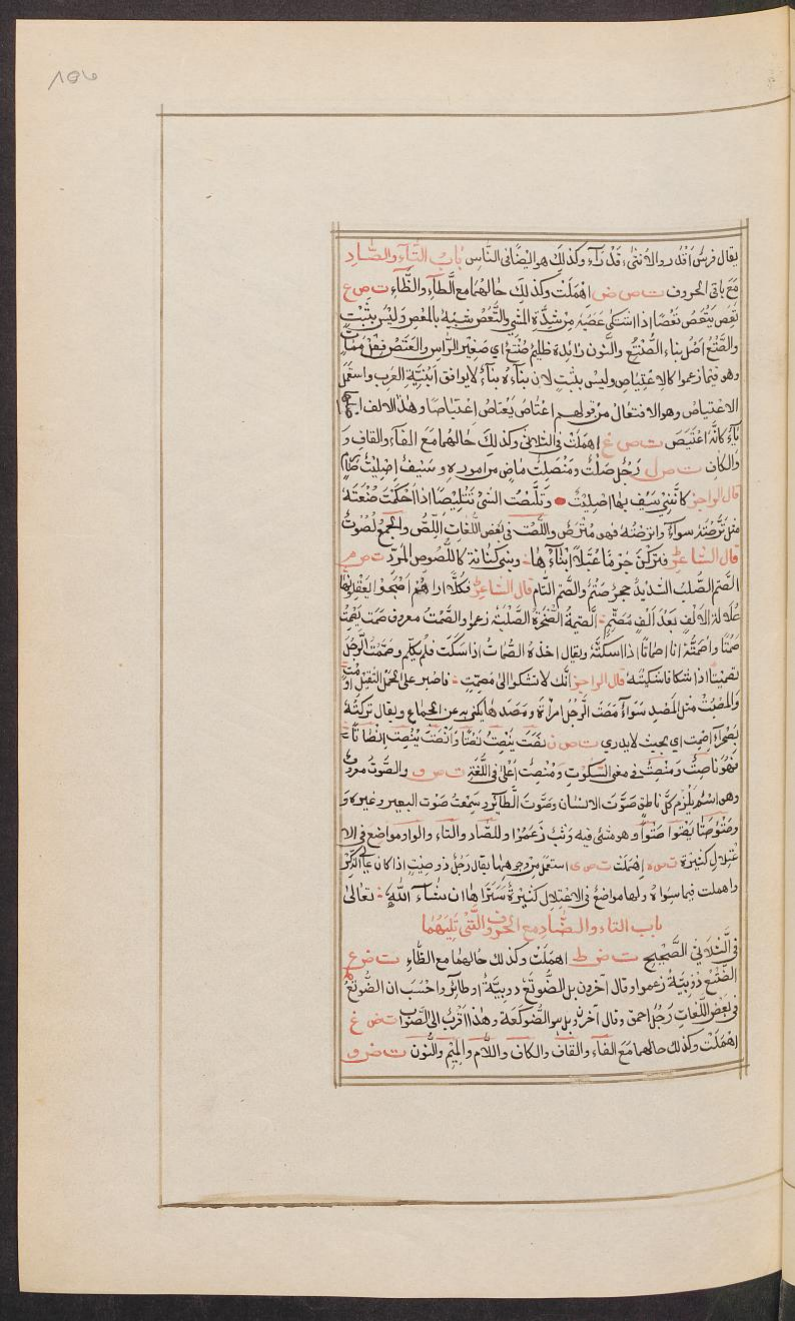 ١٥٦
يقال فرس أقدر والأنثى قدرآء وكذلك هو ايضًا فى النّاس باب التّآء والصّاد
مع باقى الحروف ت ص ض اهملت وكذلك حالهما مع الطآء والظّآء ت ص ع
تعِص يتعَص تعَصًا اذا اشتكى عصَبه من شدّة المشي والتّعص شبيه بالمعص وليس بثبت
والصّتع أصل بناء الصّنتع والنون زائدة ظليم صُنتع اي صغير الرّاس والعتص فعل ممات
وهو فيما زعموا كالاعتياص وليس بثبت لان بناءه بناء لا يوافق أبنية العرب واستعمل
الاعتياص وهو الافتعال من قولهم اعتاص يعتاص اعتياصًا وهذا الالف
يآء كانّه اعتيص ت ص غ اهملت فى الثلاثى وكذلك حالهما مع الفآء والقاف و
والكاف ت ص ل رجل صلت ومنصلت ماضٍ من اموره وسيف إصليت صارم
قال الراجز كأننى سيف بها اصليت وتلّصت الشئ تتليصًا اذا أحكمت صنعته
مثل ترّصته سوآء واترصته فهو مترص واللّصت فى بعض اللّغات اللّص والجمع لصوت
قال الشاعر فتركن جرمًا عيّلا ابنآءُها وبنى كنانة كاللّصوت المرّد ت ص م
الصّتم الصّلب الشديد حجر صَتم والصّتم التام قال الشاعر فكلّا اراهم اصبحوا يعقلونه
علالة الالف بعد ألف مصتّم الصتيمة الصّخرة الصّلبة زعموا والصّمت معروف صمت يصمت
صمتًا واصمتّه انا اصماتًا اذا اسكتّه ويقال اخذه الصّمات اذا سكت فلم يتكلّم وصمّت الرّجل
تصميتًا اذا شكا فاشكيته قال الراجز انّك لا تشكو الى مصمّت فاصبر على الحمل الثقيل او مت
والمصت مثل المصد سوآء مصت الرّجل امرأته ومصدها يكنى به عن الجماع ويقال تركته
بصحرآء إصمت اي بحيث لا يدري ت ص ن نصَت ينصِت نصتًا وأنصت ينصت إنصاتًا
فهو ناصت ومنصت فى معنى السّكوت ومنصت اعلى فى اللّغة ت ص و والصّوت معروف
وهو اسم يلزم كلّ ناطق صوت الانسان وصوت الطّآئر وسمعت صوت البعير وغيره و
وصتو صتا يصتوا صتوا وهو مشي فيه وثب زعموا وللصّاد والتاء والواو مواضع فى الا
عتلال كثيرة ت ص ه اهملت ت ص ى استعمل من وجوهها يقال رجل ذو صيت اذا كان عالى الذّكر
واهملت فيما سواه ولها مواضع فى الاعتلال كثيرة ستراها ان شآء اللّه تعالى
باب التاء والضّاد مع الحروف الّتي تليهما
فى الثّلاثي الصّحيح ت ض ط اهملت وكذلك حالهما مع الظّاء ت ض ع
الضّتع دُويبّة زعموا وقال آخرون بل الضّوتع دويبّة او طآئر واحسب ان الضّوتع
فى بعض اللّغات رجل احمق وقال آخرون بل هو الضّوكعة وهذا اقرب الى الصّواب ت ض غ
اهملت وكذلك حالهما مع الفآء والقاف والكاف واللّام والميم والنّون ت ض و